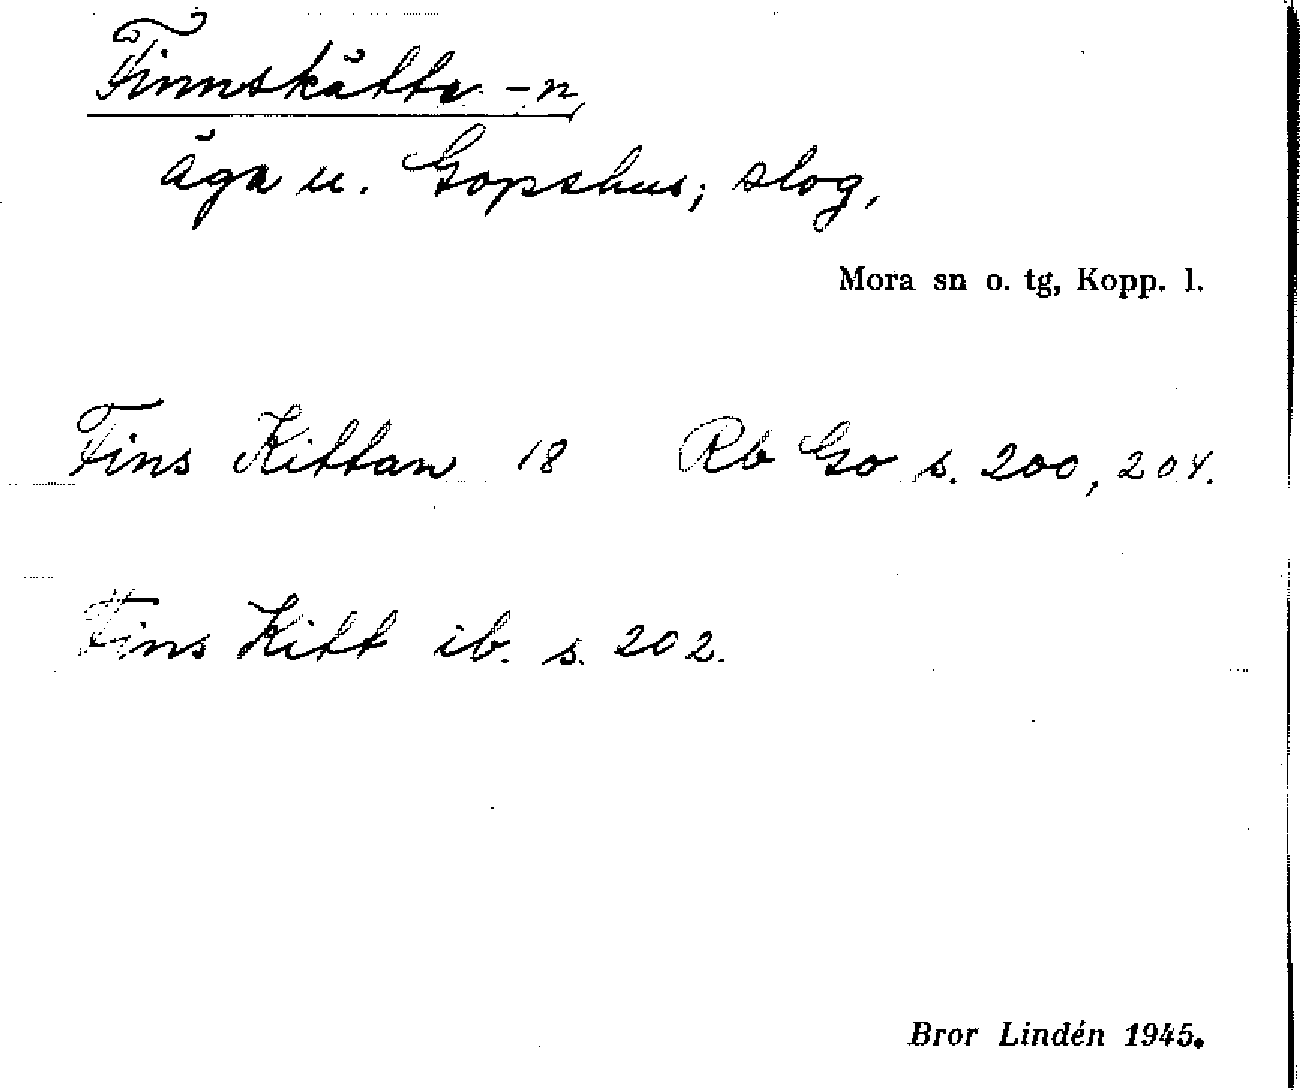 Finnskätta -n,
äga u. Gopshus; slog,
Mora sn o. tg, Kopp. l.
Fins Kittan 18 Rb Go s. 200, 204.
Fins Kitt ib. s. 202.
Bror Lindén 1945.